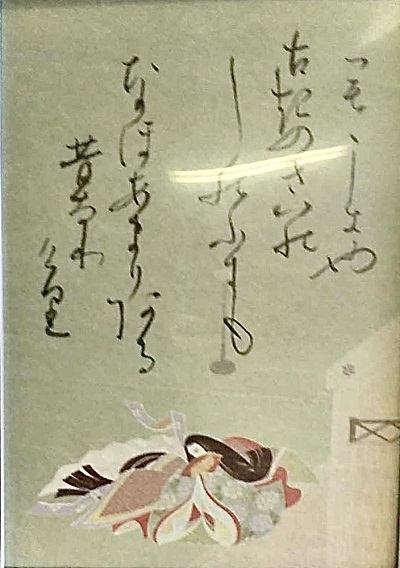 もゝしきや
古きのきはの
しのふにも
なほあまりある
昔なり
けり